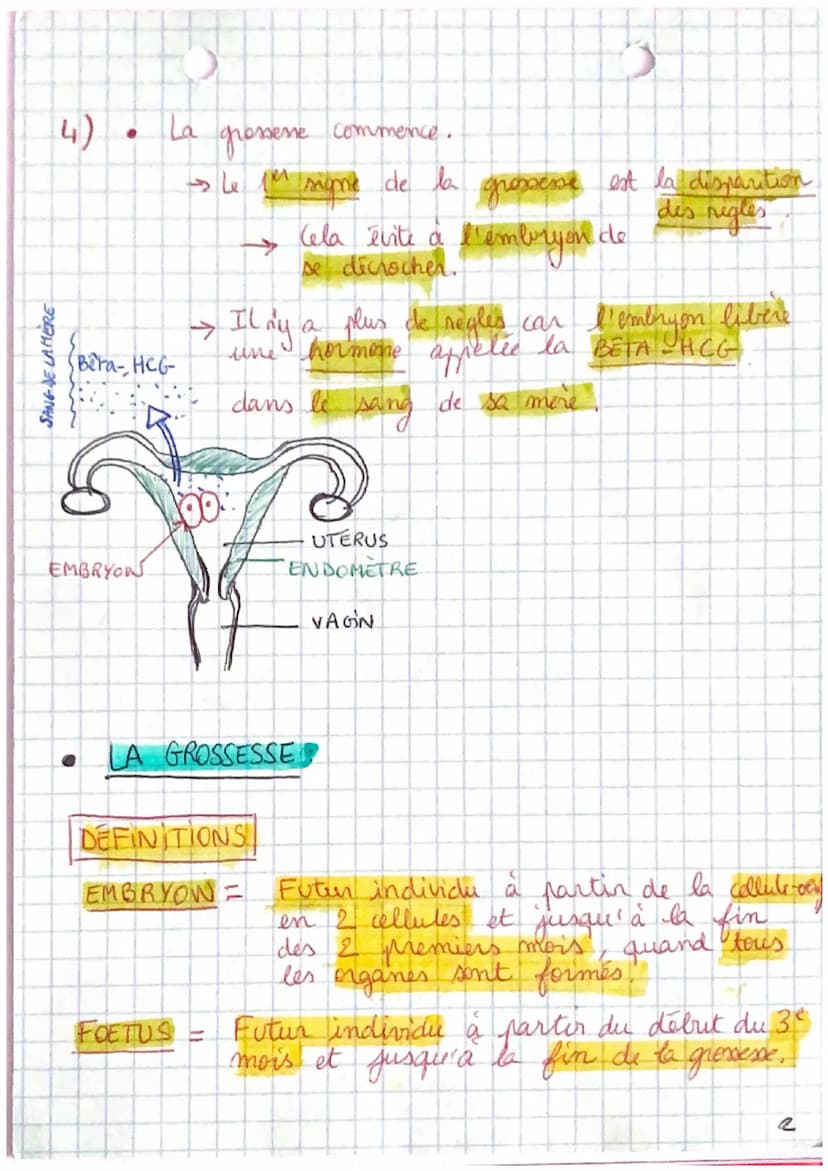 4) • La grossesse commence.
→ Le 1er signe de la grossesse est la disparition
des règles.
→ Cela évite à l'embryon de
se décrocher.
→ Il n'y a plus de règles car l'embryon libère
une hormone appelée la BÊTA-HCG
dans le sang de sa mère.
SANG DE LA MÈRE
Bêta-HCG
EMBRYON
UTÉRUS
ENDOMÈTRE
VAGIN
• LA GROSSESSE
DÉFINITIONS
EMBRYON = Futur individu à partir de la cellule-œuf
en 2 cellules et jusqu'à la fin
des 2 premiers mois, quand tous
les organes sont formés.
FOETUS = Futur individu à partir du début du 3e
mois et jusqu'à la fin de la grossesse.
2